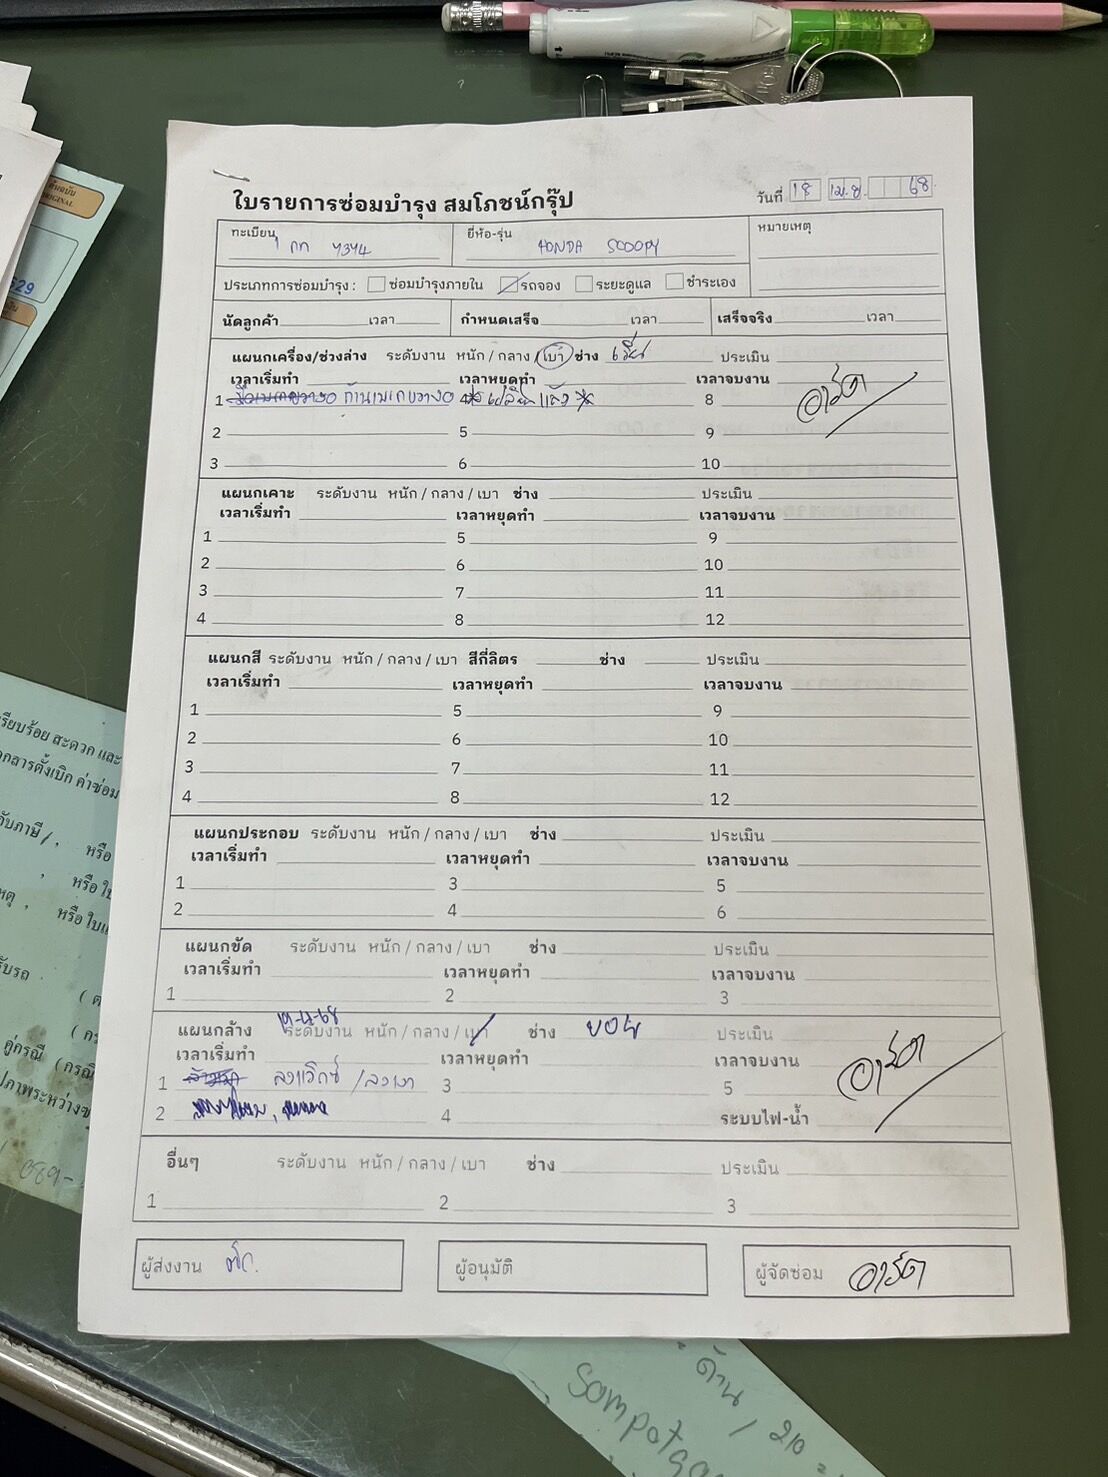 ใบรายการซ่อมบำรุง สมโภชน์กรุ๊ป
วันที่ 18 เม.ย. 68
ทะเบียน กก 7374 ยี่ห้อ-รุ่น HONDA SCOOPY หมายเหตุ
ประเภทการซ่อมบำรุง : ซ่อมบำรุงภายใน รถจอง ระยะดูแล ชำระเอง
นัดลูกค้า เวลา กำหนดเสร็จ เวลา เสร็จจริง เวลา
แผนกเครื่อง/ช่วงล่าง ระดับงาน หนัก / กลาง / เบา ช่าง ประเมิน
เวลาเริ่มทำ เวลาหยุดทำ เวลาจบงาน
1 ก้านเบรกขวางอ 4 เปลี่ยนแล้ว 8 อาร์ต
2 5 9
3 6 10
แผนกเคาะ ระดับงาน หนัก / กลาง / เบา ช่าง ประเมิน
เวลาเริ่มทำ เวลาหยุดทำ เวลาจบงาน
1 5 9
2 6 10
3 7 11
4 8 12
แผนกสี ระดับงาน หนัก / กลาง / เบา สีกี่ลิตร ช่าง ประเมิน
เวลาเริ่มทำ เวลาหยุดทำ เวลาจบงาน
1 5 9
2 6 10
3 7 11
4 8 12
แผนกประกอบ ระดับงาน หนัก / กลาง / เบา ช่าง ประเมิน
เวลาเริ่มทำ เวลาหยุดทำ เวลาจบงาน
1 3 5
2 4 6
แผนกขัด ระดับงาน หนัก / กลาง / เบา ช่าง ประเมิน
เวลาเริ่มทำ เวลาหยุดทำ เวลาจบงาน
1 2 3
แผนกล้าง ระดับงาน หนัก / กลาง / เบา ช่าง ประเมิน
เวลาเริ่มทำ เวลาหยุดทำ เวลาจบงาน
1 ลงแว๊กซ์ / ลงเงา 3 5 อาร์ต
2 4 ระบบไฟ-น้ำ
อื่นๆ ระดับงาน หนัก / กลาง / เบา ช่าง ประเมิน
1 2 3
ผู้ส่งงาน ผู้อนุมัติ ผู้จัดซ่อม อาร์ต
ต้นฉบับ
ORIGINAL
629
เรียบร้อย สะดวก และ
เอกสารตั้งเบิก ค่าซ่อม
หรือ
หรือ ใบ
089-
ด้าน / 210